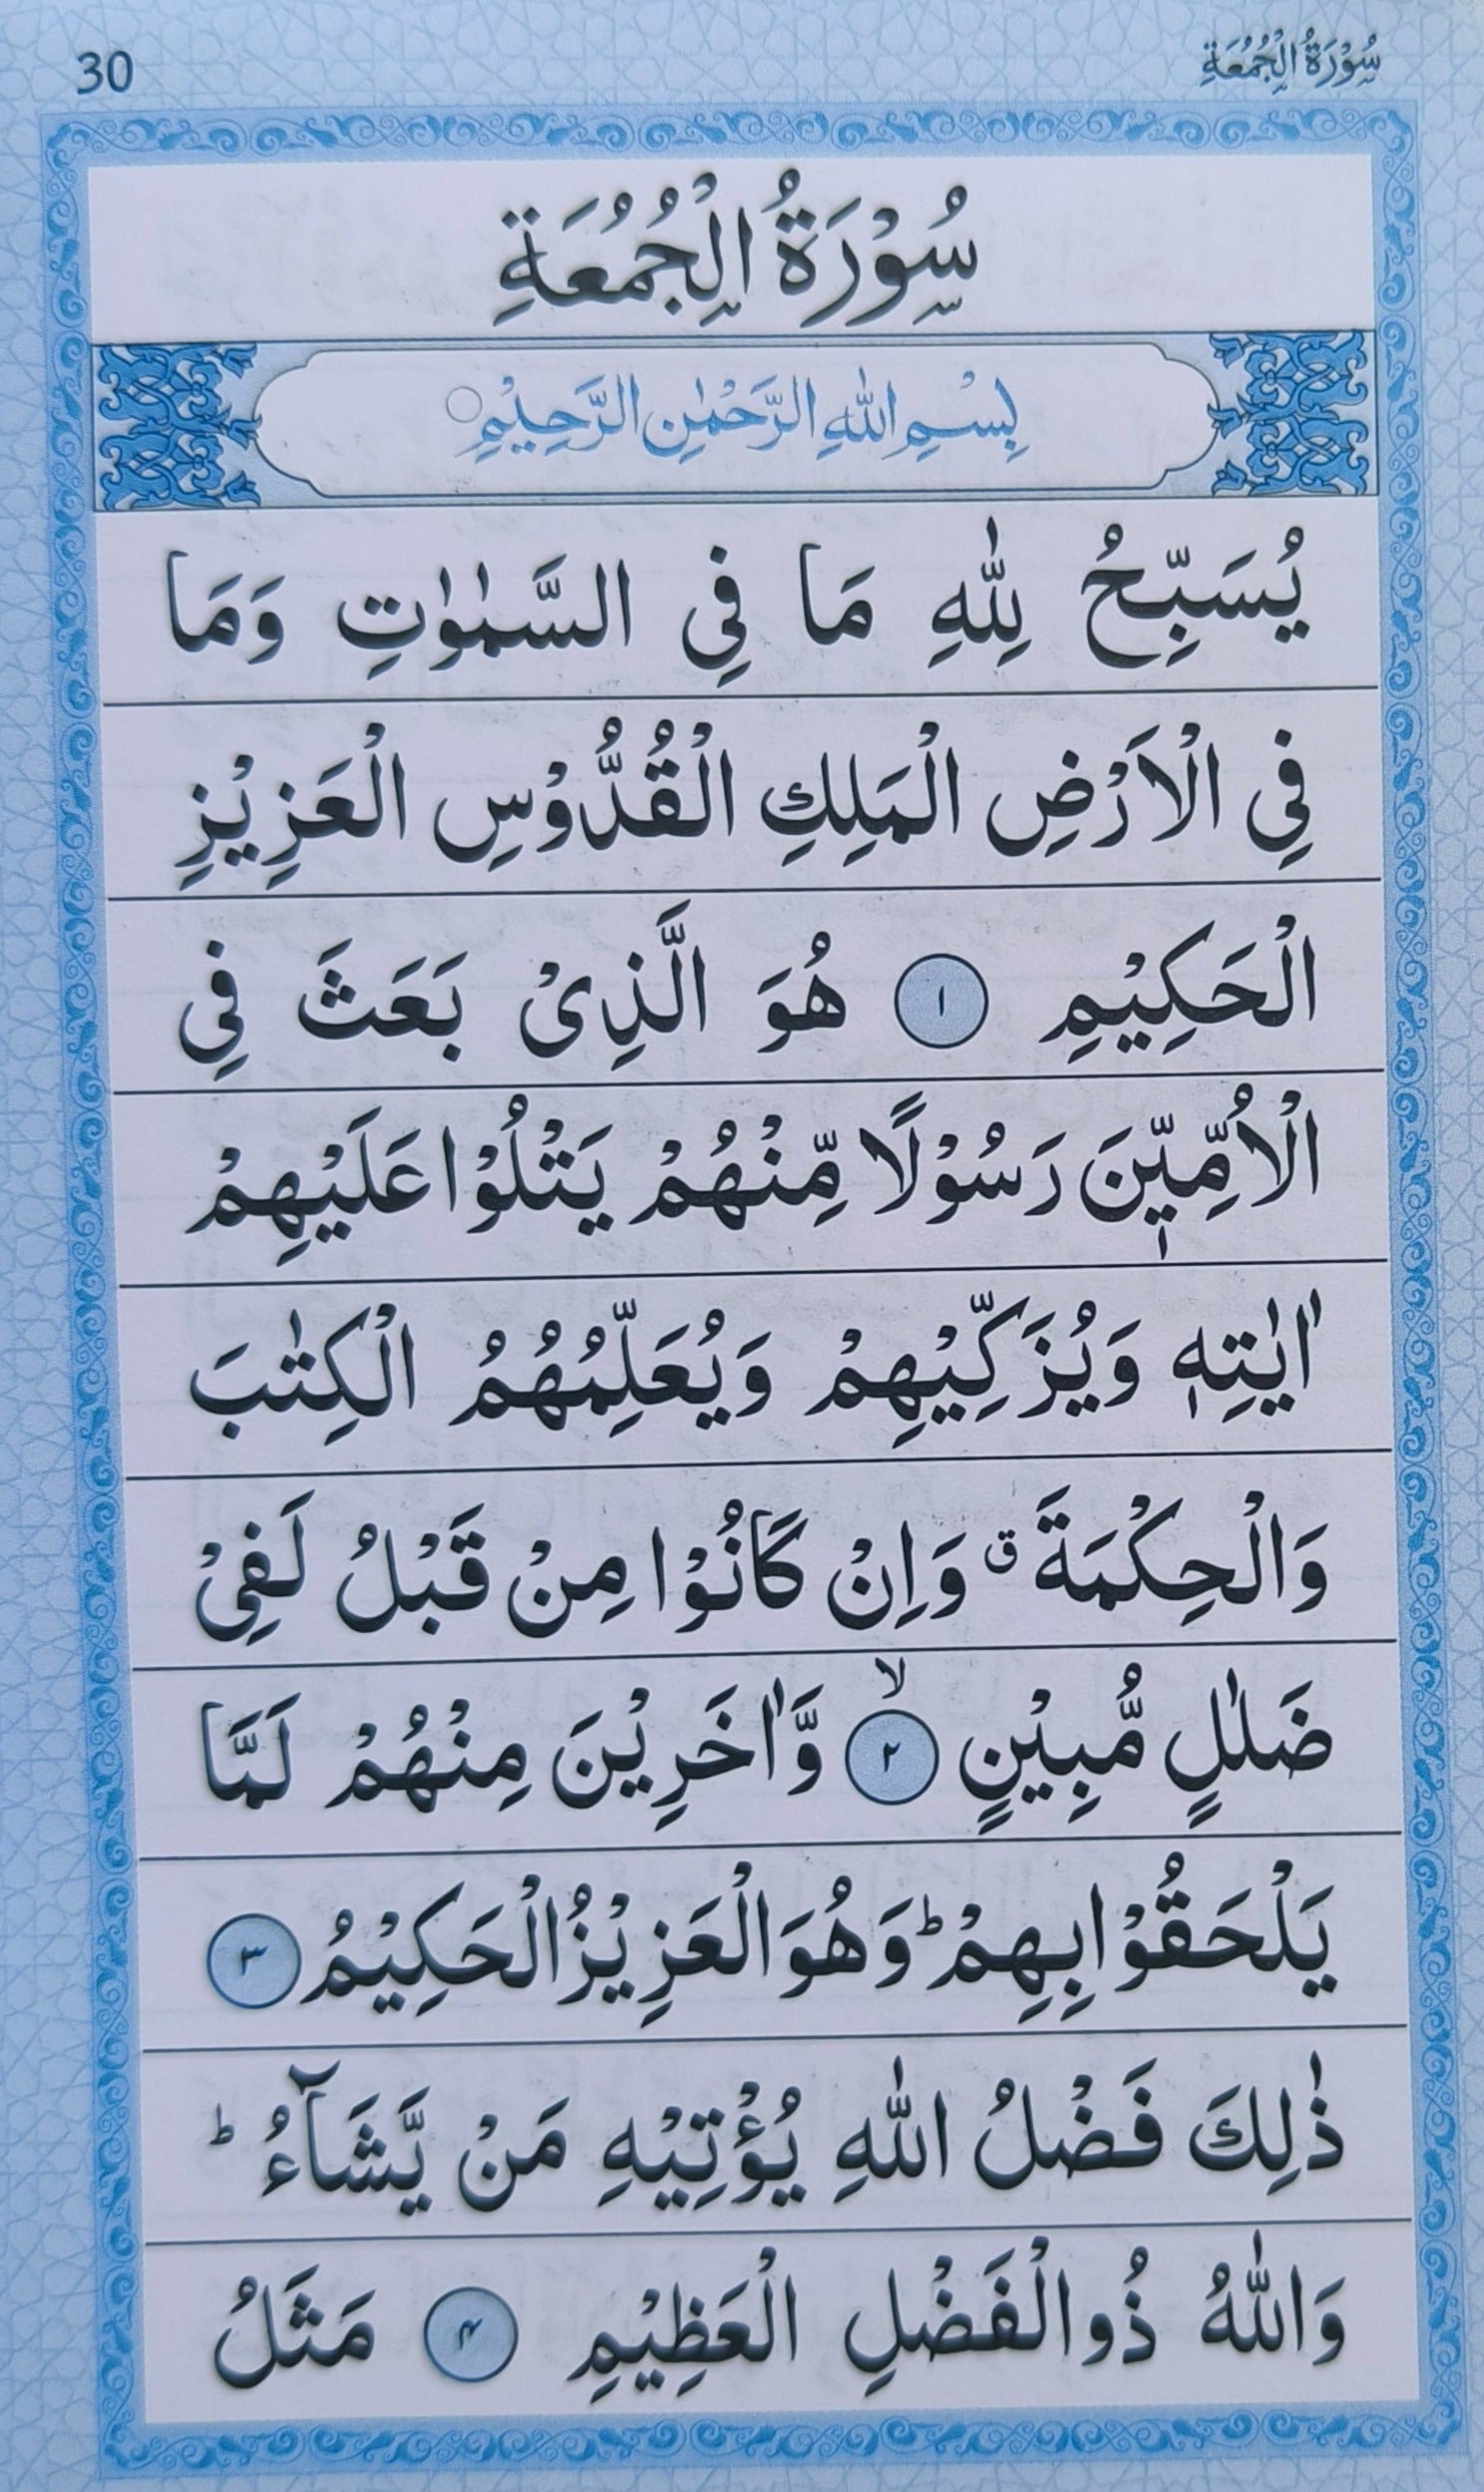 30 سُوْرَةُ الْجُمُعَةِ
سُوْرَةُ الْجُمُعَةِ
بِسْمِ اللّٰهِ الرَّحْمٰنِ الرَّحِيْمِ
يُسَبِّحُ لِلّٰهِ مَا فِى السَّمٰوٰتِ وَمَا
فِى الْاَرْضِ الْمَلِكِ الْقُدُّوْسِ الْعَزِيْزِ
الْحَكِيْمِ ۱ هُوَ الَّذِىْ بَعَثَ فِى
الْاُمِّيّٖنَ رَسُوْلًا مِّنْهُمْ يَتْلُوْا عَلَيْهِمْ
اٰيٰتِهٖ وَيُزَكِّيْهِمْ وَيُعَلِّمُهُمُ الْكِتٰبَ
وَالْحِكْمَةَ ق وَاِنْ كَانُوْا مِنْ قَبْلُ لَفِىْ
ضَلٰلٍ مُّبِيْنٍ ۙ ۲ وَّاٰخَرِيْنَ مِنْهُمْ لَمَّا
يَلْحَقُوْا بِهِمْ ؕ وَهُوَ الْعَزِيْزُ الْحَكِيْمُ ۳
ذٰلِكَ فَضْلُ اللّٰهِ يُؤْتِيْهِ مَنْ يَّشَآءُ ؕ
وَاللّٰهُ ذُو الْفَضْلِ الْعَظِيْمِ ۴ مَثَلُ